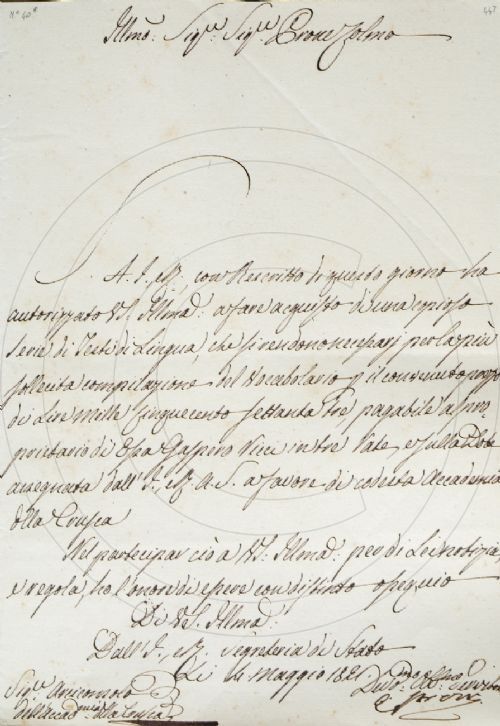 N° 40
447
Illmo: Sigre Sigre Prone Colmo
S. A. I. e R. con Rescritto di questo giorno ha
autorizzato VS. Illma: a fare acquisto di una copiosa
serie di Testi di Lingua, che si rendono necessarj per la più
sollecita compilazione del Vocabolario p il convenuto prezzo
di Lire mille cinquecento settanta tre, pagabile al pro,
prietario di essa Gaspero Ricci in tre Rate, e sulla Dote
assegnata dall' I. e R. A. S. a favore di codesta Accademia
della Crusca
Nel partecipar ciò a VS. Illma: per di Lei notizia,
e regola, ho l'onore di essere con distinto ossequio
Di VS. Illma:
Dall' I. e R. Segreteria di Stato
Li 14 Maggio 1821
Sigre Arciconsolo
dell'Accademia della Crusca